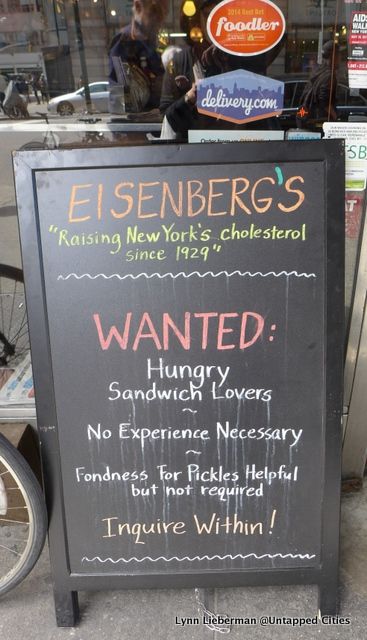 2014 Best Bet
foodler
delivery.com
AIDS
WALK
EISENBERG'S
"Raising New York's cholesterol
since 1929"
WANTED:
Hungry
Sandwich Lovers
~
No Experience Necessary
~
Fondness For Pickles Helpful
but not required
Inquire Within!
Lynn Lieberman @Untapped Cities